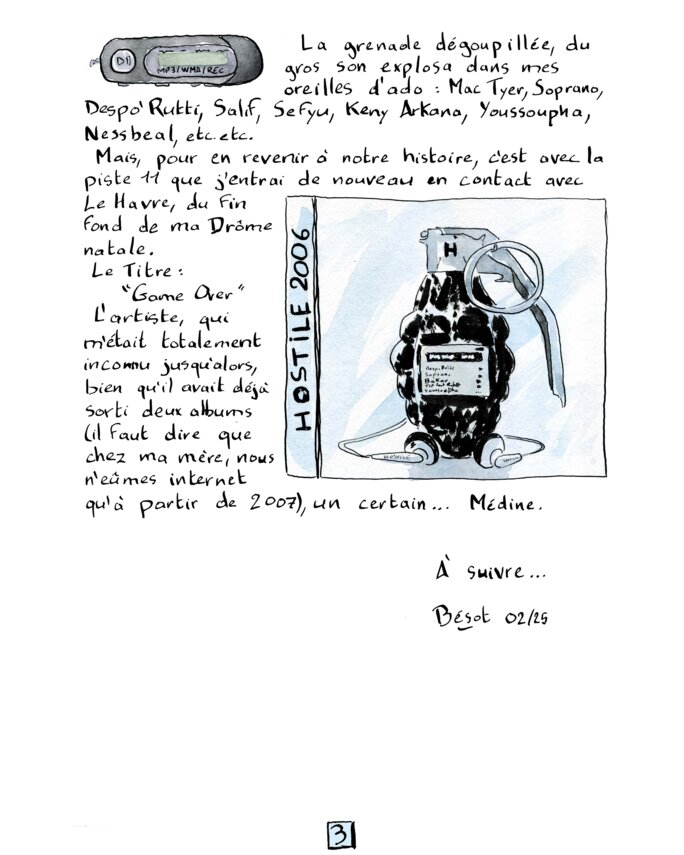 MP3/WMA/REC
La grenade dégoupillée, du
gros son explosa dans mes
oreilles d'ado : Mac Tyer, Soprano,
Despo'Rutti, Salif, Sefyu, Keny Arkana, Youssoupha,
Nessbeal, etc.etc.
Mais, pour en revenir à notre histoire, c'est avec la
piste 11 que j'entrai de nouveau en contact avec
Le Havre, du fin
fond de ma Drôme
natale.
Le Titre :
"Game Over"
L'artiste, qui
m'était totalement
inconnu jusqu'alors,
bien qu'il avait déjà
sorti deux albums
(il faut dire que
chez ma mère, nous
n'eûmes internet
qu'à partir de 2007), un certain... Médine.
HOSTILE 2006
H
Soprano
À suivre...
Bésot 02/25
3